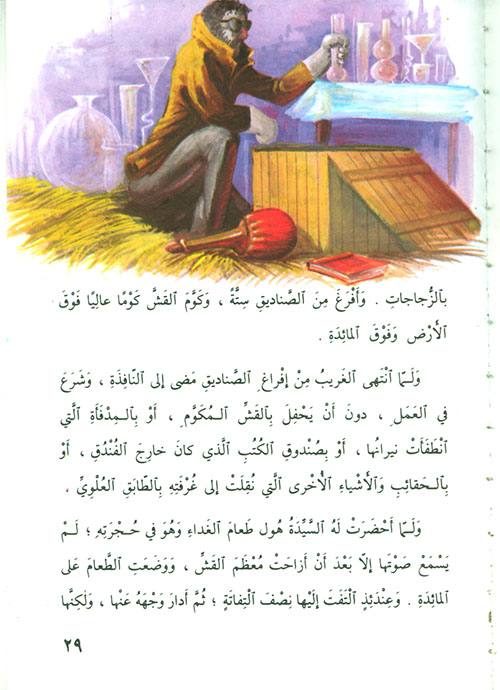 بِٱلزُّجاجاتِ . وَأَفْرَغَ مِنَ ٱلصَّناديقِ سِتَّةً ، وَكَوَّمَ ٱلقَشَّ كَوْمًا عالِيًا فَوْقَ
ٱلأَرْضِ وَفَوْقَ ٱلمائِدَةِ .
وَلَـمّا ٱنْتَهى ٱلغَريبُ مِنْ إفْراغِ ٱلصَّناديقِ مَضى إلى ٱلنّافِذَةِ ، وَشَرَعَ
في ٱلعَمَلِ ، دونَ أَنْ يَحْفِلَ بِٱلقَشِّ ٱلمُكَوَّمِ ، أَوْ بِٱلـمِدْفَأَةِ ٱلَّتي
ٱنْطَفَأَتْ نيرانُها ، أَوْ بِصُنْدوقِ ٱلكُتُبِ ٱلَّذي كانَ خارِجَ ٱلفُنْدُقِ ، أَوْ
بِٱلـحَقائِبِ وَٱلأَشْياءِ ٱلأُخْرى ٱلَّتي نُقِلَتْ إلى غُرْفَتِهِ بِٱلطّابَقِ ٱلعُلْوِيِّ .
وَلَـمّا أَحْضَرَتْ لَهُ ٱلسَّيِّدَةُ هول طَعامَ ٱلغَداءِ وَهُوَ في حُجْرَتِهِ ؛ لَـمْ
يَسْمَعْ صَوْتَها إلّا بَعْدَ أَنْ أَزاحَتْ مُعْظَمَ ٱلقَشِّ ، وَوَضَعَتِ ٱلطَّعامَ عَلى
ٱلمائِدَةِ . وَعِنْدَئِذٍ ٱلْتَفَتَ إلَيْها نِصْفَ ٱلْتِفاتَةٍ ؛ ثُمَّ أَدارَ وَجْهَهُ عَنْها ، وَلٰكِنَّها
٢٩